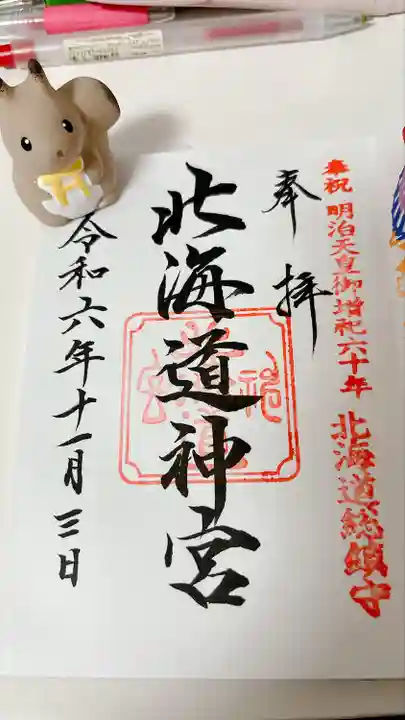 奉祝 明治天皇御増祀六十年 北海道総鎮守
奉拝
北海道神宮
令和六年十一月三日